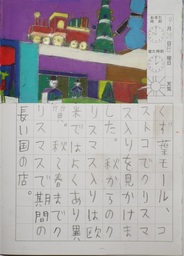 月 日 曜日
くず葉モール、コ
ストコでクリスマ
ス入りを見かけま
した。 秋からのク
リスマス入りは欧
米ではよくあり異
。秋〜春までク
リスマスで期間の
長い国の店。